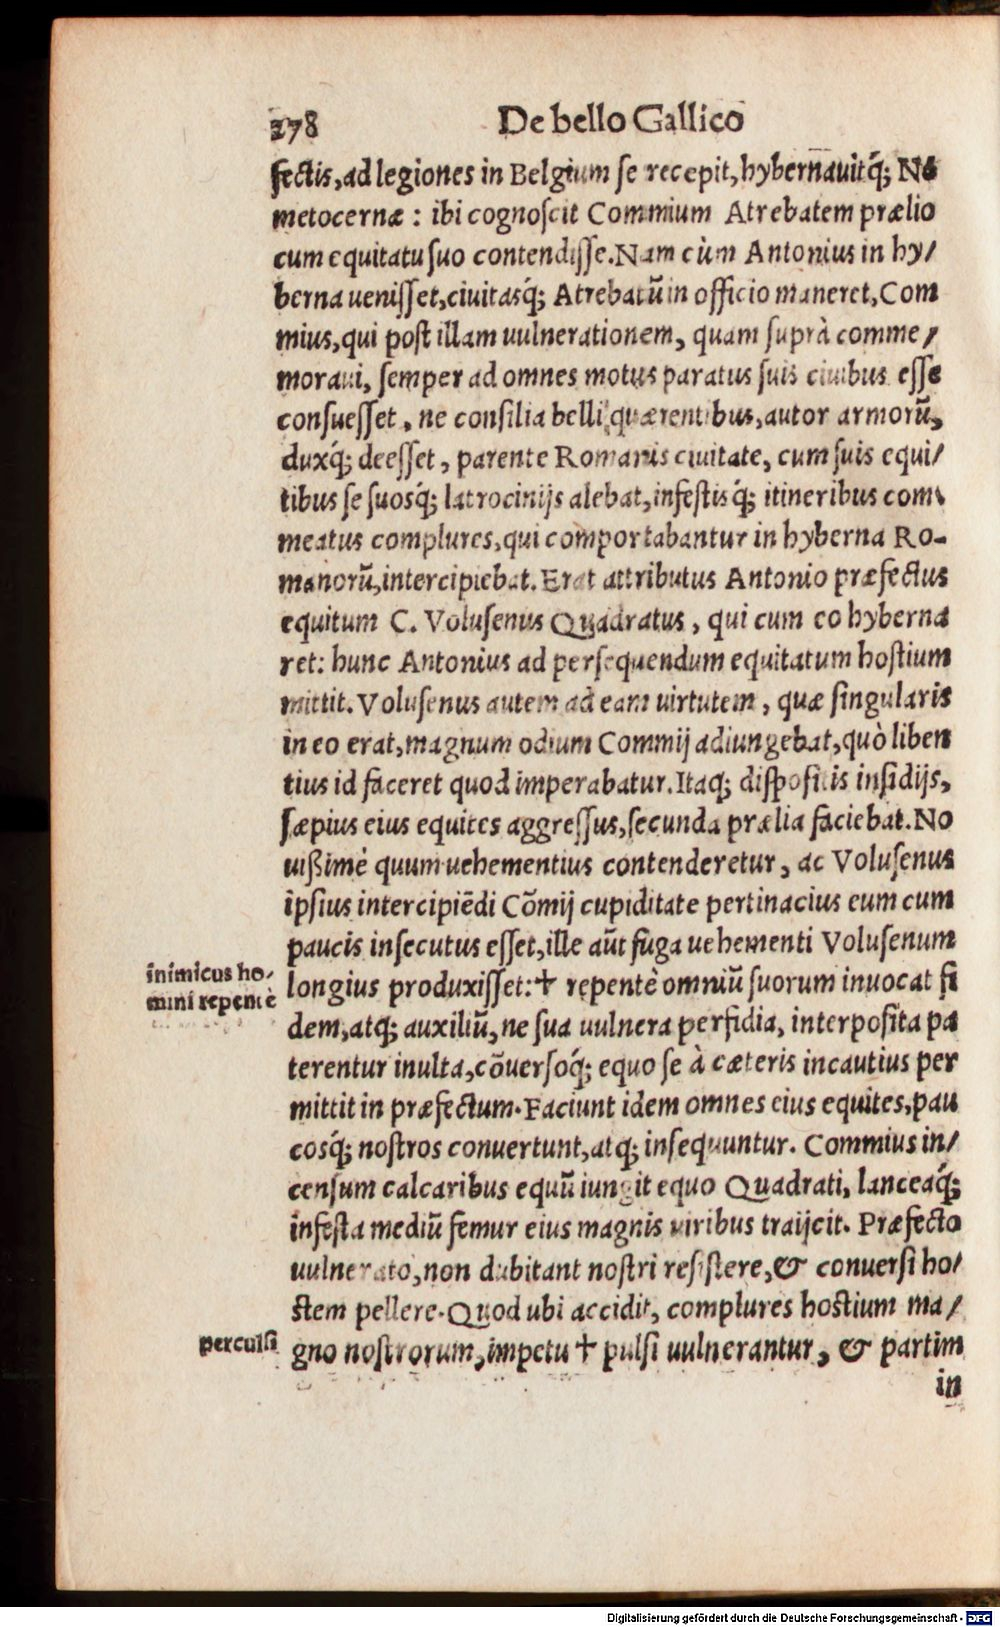 278 De bello Gallico
fectis, ad legiones in Belgium se recepit, hybernauitq́; Ne
metocernæ : ibi cognoscit Commium Atrebatem prælio
cum equitatu suo contendisse. Nam cùm Antonius in hy/
berna uenisset, ciuitasq́; Atrebatũ in officio maneret, Com
mius, qui post illam uulnerationem, quam suprà comme/
moraui, semper ad omnes motus paratus suis ciuibus esse
consuesset, ne consilia belli quærentibus, autor armorũ,
duxq́; deesset, parente Romanis ciuitate, cum suis equi/
tibus se suosq́; latrocinijs alebat, infestisq́; itineribus com
meatus complures, qui comportabantur in hyberna Ro-
manorũ, intercipiebat. Erat attributus Antonio præfectus
equitum C. Volusenus Quadratus, qui cum eo hyberna
ret: hunc Antonius ad persequendum equitatum hostium
mittit. Volusenus autem ad eam uirtutem, quæ singularis
in eo erat, magnum odium Commij adiungebat, quò liben
tius id faceret quod imperabatur. Itaq; dispositis insidijs,
sæpius eius equites aggressus, secunda prælia faciebat. No
uißimè quum uehementius contenderetur, ac Volusenus
ipsius intercipiẽdi Cõmij cupiditate pertinacius eum cum
paucis insecutus esset, ille aũt fuga uehementi Volusenum
inimicus ho/
mini repentè
longius produxisset: † repentè omniũ suorum inuocat fi
dem, atq; auxiliũ, ne sua uulnera perfidia, interposita pa
terentur inulta, cõuersoq́; equo se à cæteris incautius per
mittit in præfectum. Faciunt idem omnes eius equites, pau
cosq́; nostros conuertunt, atq; insequuntur. Commius in/
censum calcaribus equũ iungit equo Quadrati, lanceaq́;
infesta mediũ femur eius magnis uiribus traijcit. Præfecto
uulnerato, non dubitant nostri resistere, & conuersi ho/
stem pellere. Quod ubi accidit, complures hostium ma/
perculsi
gno nostrorum, impetu † pulsi uulnerantur, & partim
in
Digitalisierung gefördert durch die Deutsche Forschungsgemeinschaft - DFG